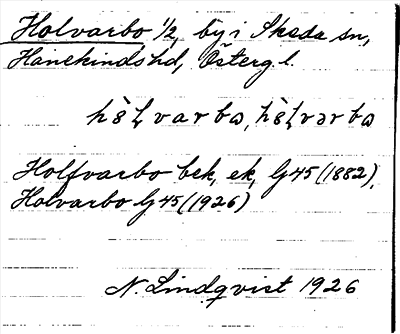 Holvarbo ½, by i Skeda sn,
Hanekinds hd, Österg. l.
hò̤ḷvarbɷ, hò̤ḷvərbɷ
Holfvarbo bek, ek, G45 (1882),
Holvarbo G45 (1926)
N. Lindqvist 1926